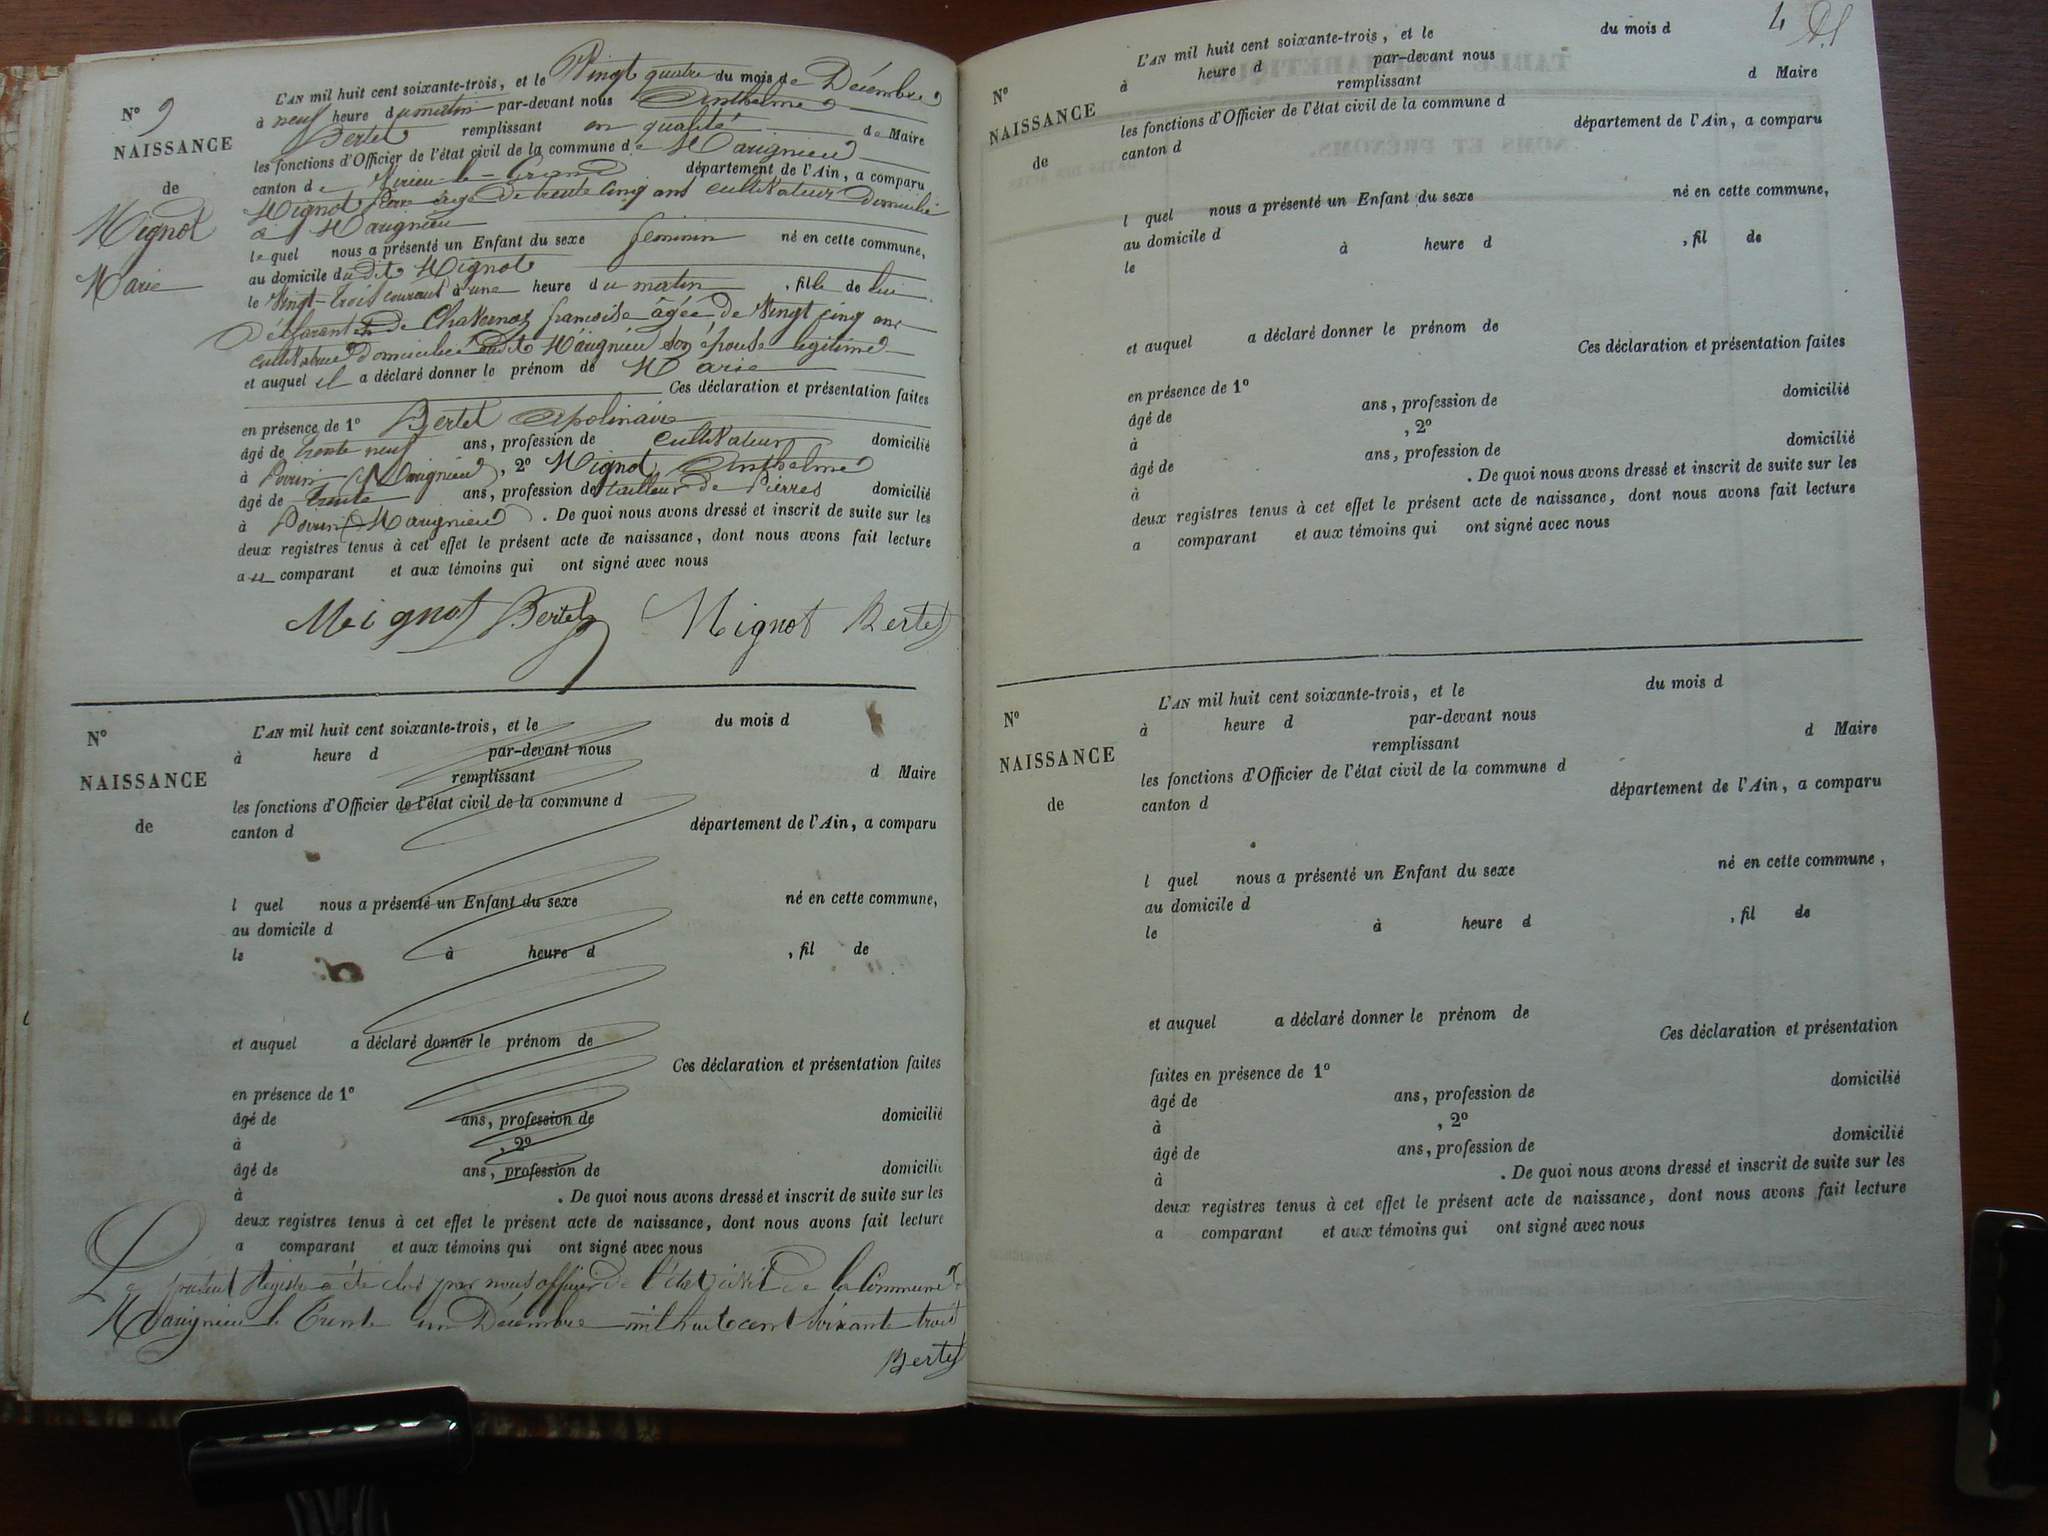 N° 9
NAISSANCE
de
Mignot
Marie
L'AN mil huit cent soixante-trois, et le Vingt quatre du mois de Décembre
à neuf heure du matin par-devant nous Anthelme
Bertet remplissant en qualité de Maire
les fonctions d'Officier de l'état civil de la commune de Marignieu
canton de Virieu-le-Grand département de l'Ain, a comparu
Mignot Pierre âgé de trente cinq ans cultivateur domicilié
à Marignieu
lequel nous a présenté un Enfant du sexe féminin né en cette commune,
au domicile dudit Mignot
le Vingt-trois courant à une heure du matin, fille de lui
déclarant et de Chavernoz françoise âgée de Vingt cinq ans
cultivatrice domiciliée audit Marignieu son épouse légitime
et auquel il a déclaré donner le prénom de Marie
Ces déclaration et présentation faites
en présence de 1° Bertet Apolinaire
âgé de trente neuf ans, profession de cultivateur domicilié
à Poirin Marignieu, 2° Mignot Anthelme
âgé de trente ans, profession de tailleur de Pierres domicilié
à Poirin Marignieu. De quoi nous avons dressé et inscrit de suite sur les
deux registres tenus à cet effet le présent acte de naissance, dont nous avons fait lecture
au comparant et aux témoins qui ont signé avec nous
Meignot Bertet Mignot Bertet
N°
NAISSANCE
de
L'AN mil huit cent soixante-trois, et le du mois d
à heure d par-devant nous
remplissant d Maire
les fonctions d'Officier de l'état civil de la commune d
canton d département de l'Ain, a comparu
l quel nous a présenté un Enfant du sexe né en cette commune,
au domicile d
le à heure d , fil de
et auquel a déclaré donner le prénom de
Ces déclaration et présentation faites
en présence de 1°
âgé de ans, profession de domicilié
à , 2°
âgé de ans, profession de domicilié
à . De quoi nous avons dressé et inscrit de suite sur les
deux registres tenus à cet effet le présent acte de naissance, dont nous avons fait lecture
a comparant et aux témoins qui ont signé avec nous
Le présent Registre a été clos par nous officier de l'état civil de la Commune de
Marignieu le Trente un Décembre mil huit cent soixante trois
Bertet
4
N°
NAISSANCE
de
L'AN mil huit cent soixante-trois, et le du mois d
à heure d par-devant nous
remplissant d Maire
les fonctions d'Officier de l'état civil de la commune d
canton d département de l'Ain, a comparu
l quel nous a présenté un Enfant du sexe né en cette commune,
au domicile d
le à heure d , fil de
et auquel a déclaré donner le prénom de
Ces déclaration et présentation faites
en présence de 1°
âgé de ans, profession de domicilié
à , 2°
âgé de ans, profession de domicilié
à . De quoi nous avons dressé et inscrit de suite sur les
deux registres tenus à cet effet le présent acte de naissance, dont nous avons fait lecture
a comparant et aux témoins qui ont signé avec nous
N°
NAISSANCE
de
L'AN mil huit cent soixante-trois, et le du mois d
à heure d par-devant nous
remplissant d Maire
les fonctions d'Officier de l'état civil de la commune d
canton d département de l'Ain, a comparu
l quel nous a présenté un Enfant du sexe né en cette commune,
au domicile d
le à heure d , fil de
et auquel a déclaré donner le prénom de
Ces déclaration et présentation
faites en présence de 1°
âgé de ans, profession de domicilié
à , 2°
âgé de ans, profession de domicilié
à . De quoi nous avons dressé et inscrit de suite sur les
deux registres tenus à cet effet le présent acte de naissance, dont nous avons fait lecture
a comparant et aux témoins qui ont signé avec nous